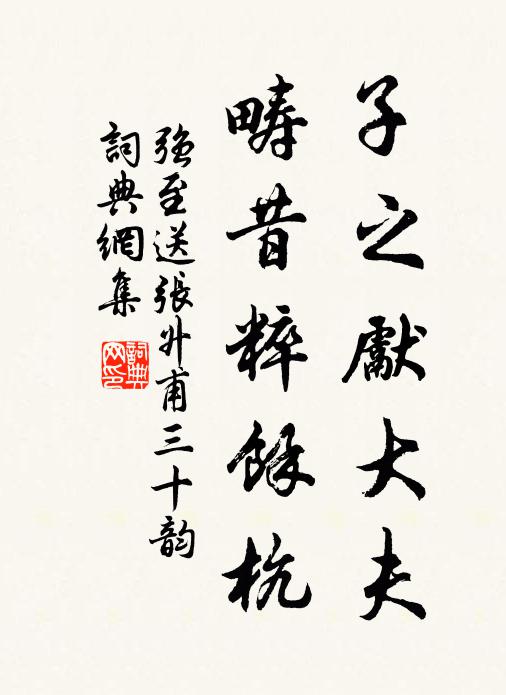 子之獻大夫
疇昔粹餘杭
強至送張升甫三十韵
詞典網集
詞典網印